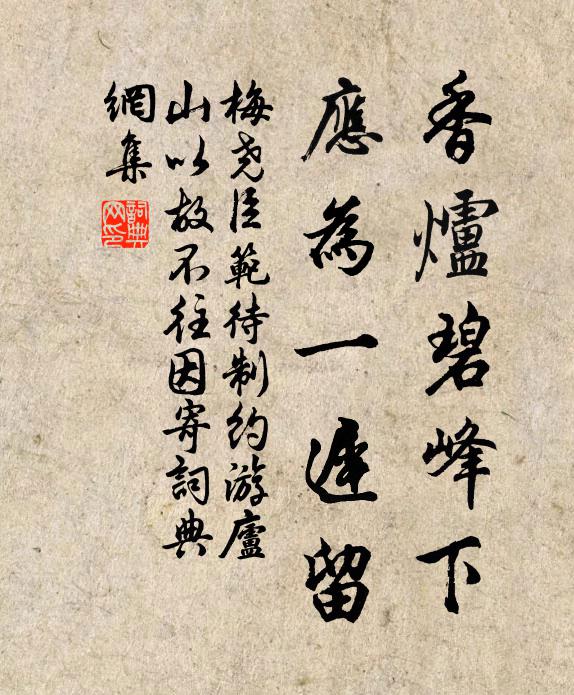 香爐碧峰下
應為一遲留
梅堯臣範待制約游廬
山以故不往因寄詞典
網集
詞典網印